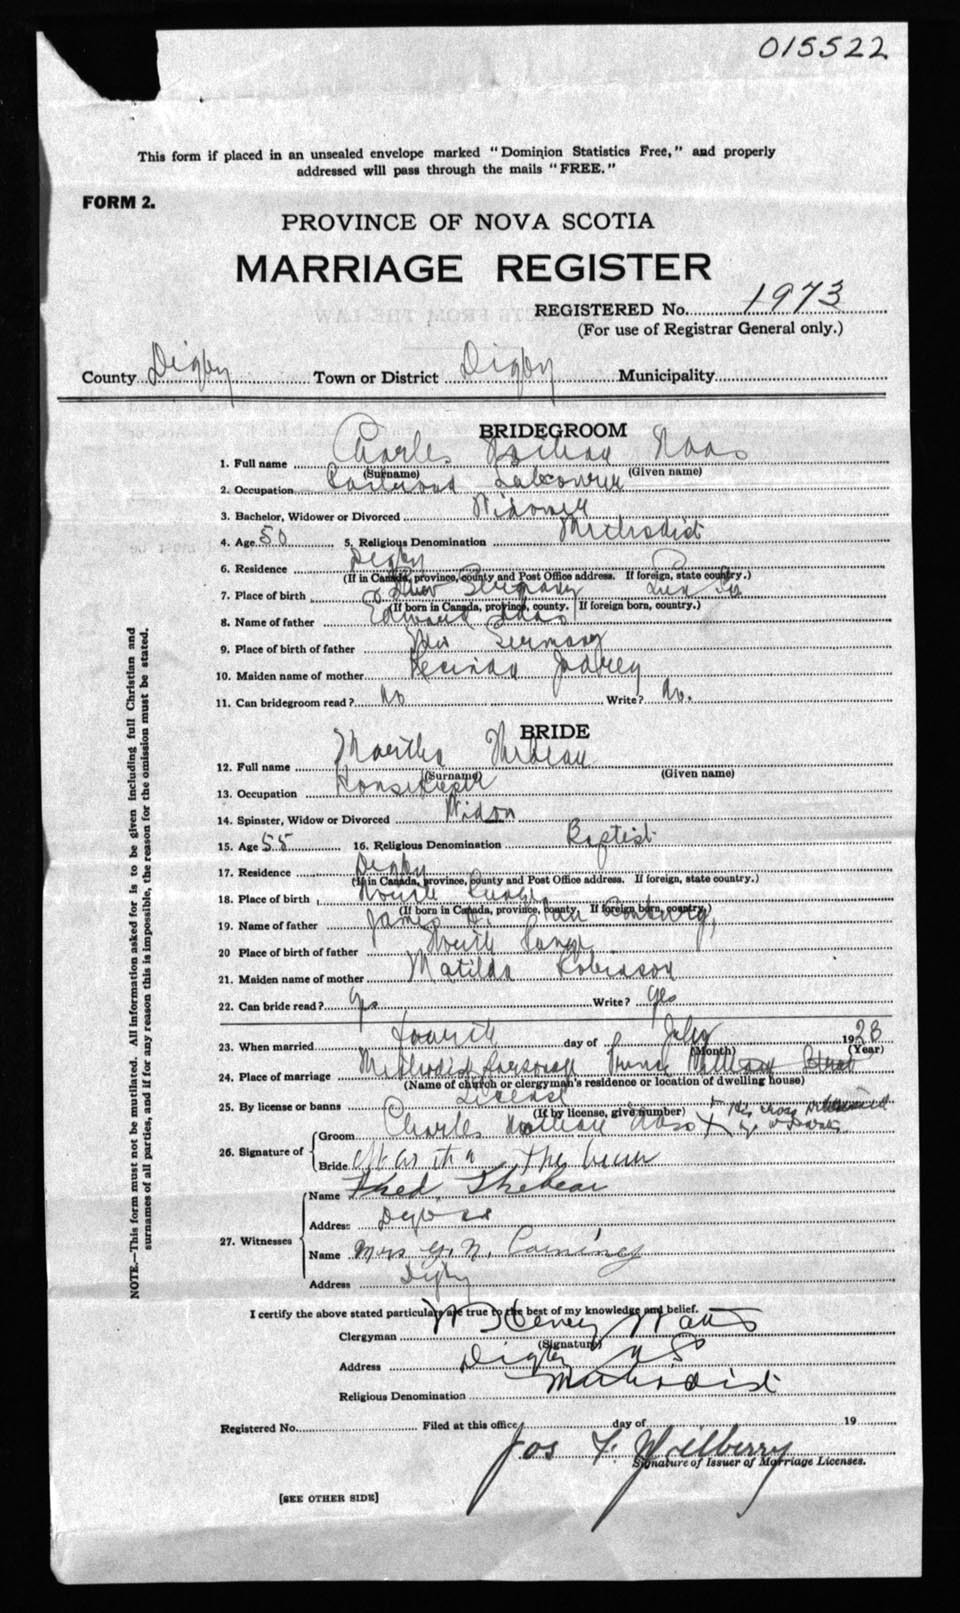 015522
This form if placed in an unsealed envelope marked "Dominion Statistics Free," and properly
addressed will pass through the mails "FREE."
FORM 2.
PROVINCE OF NOVA SCOTIA
MARRIAGE REGISTER
REGISTERED No. 1973
(For use of Registrar General only.)
County Digby Town or District Digby Municipality
BRIDEGROOM
1. Full name Charles Naas
(Surname) (Given name)
2. Occupation
3. Bachelor, Widower or Divorced Widower
4. Age 50 5. Religious Denomination Methodist
6. Residence Digby
(If in Canada, province, county and Post Office address. If foreign, state country.)
7. Place of birth New Germany
(If born in Canada, province, county. If foreign born, country.)
8. Name of father Edward Naas
9. Place of birth of father New Germany
10. Maiden name of mother
11. Can bridegroom read? no Write? No.
BRIDE
12. Full name Martha
(Surname) (Given name)
13. Occupation Housekeeper
14. Spinster, Widow or Divorced Widow
15. Age 55 16. Religious Denomination Baptist
17. Residence Digby
(If in Canada, province, county and Post Office address. If foreign, state country.)
18. Place of birth North Range
(If born in Canada, province, county. If foreign born, country.)
19. Name of father James
20 Place of birth of father North Range
21. Maiden name of mother Matilda Robinson
22. Can bride read? yes Write? yes
23. When married fourth day of July 1923
(Month) (Year)
24. Place of marriage Methodist Parsonage Prince William Street
(Name of church or clergyman's residence or location of dwelling house)
25. By license or banns License
(If by license, give number)
26. Signature of
Groom Charles Naas X His cross
Bride Martha
27. Witnesses
Name Fred
Address Digby
Name Mrs
Address Digby
I certify the above stated particulars are true to the best of my knowledge and belief.
Clergyman Watts
(Signature)
Address Digby N S
Religious Denomination Methodist
Registered No. Filed at this office day of 19
Jos F.
Signature of Issuer of Marriage Licenses.
[SEE OTHER SIDE]
NOTE.—This form must not be mutilated. All information asked for is to be given including full Christian and
surnames of all parties, and if for any reason this is impossible, the reason for the omission must be stated.